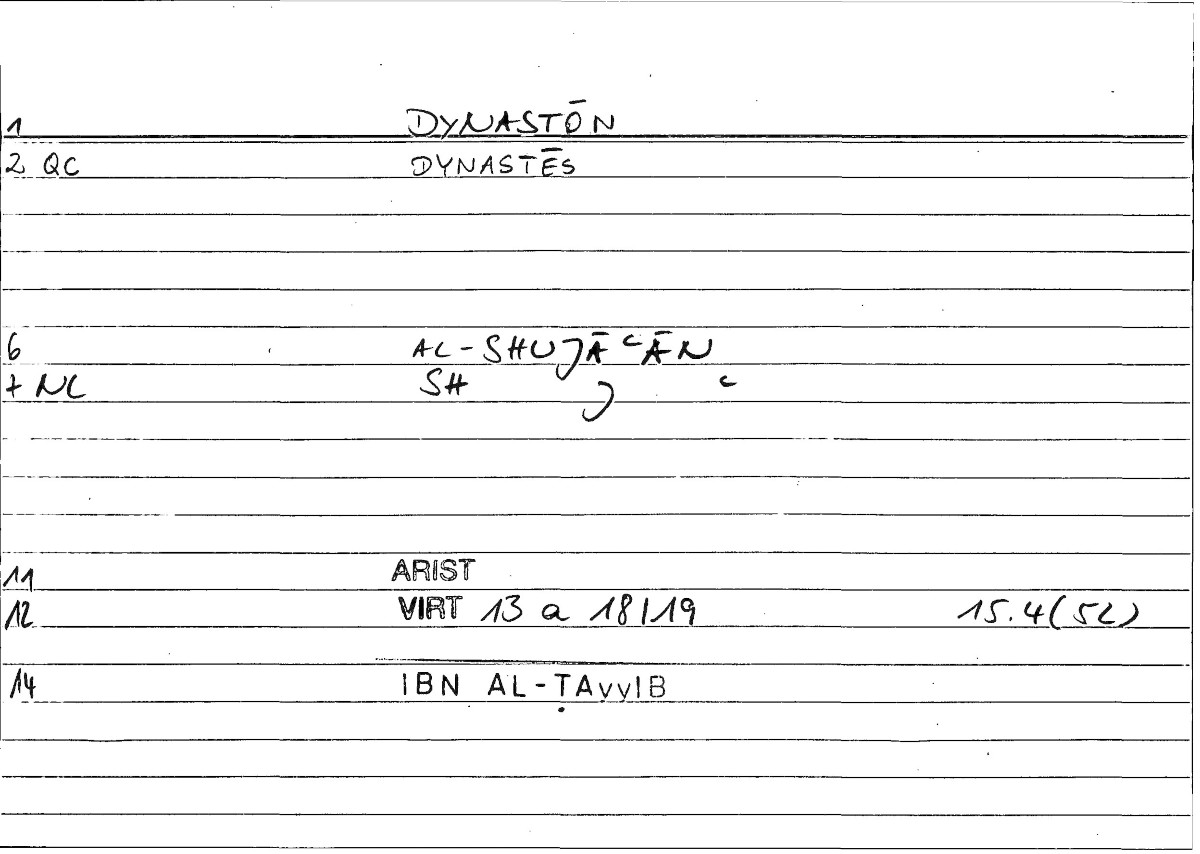 1 DYNASTŌN
2 QC DYNASTĒS
6 AL-SHUJĀʿĀN
7 NL SH J ʿ
11 ARIST
12 VIRT 13 a 18/19 15.4(52)
14 IBN AL-ṬAyyIB